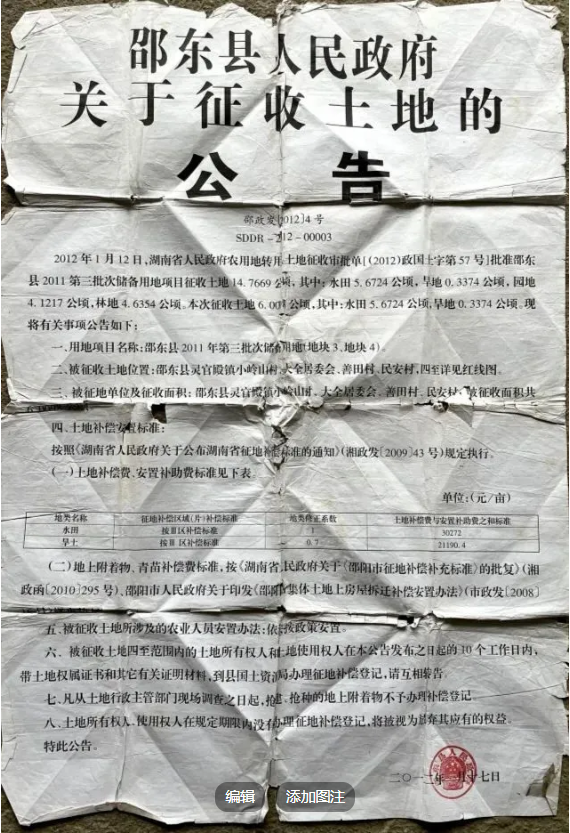 邵东县人民政府
关于征收土地的
公告
邵政发[2012]4号
SDDR-2012-00003
2012年1月12日,湖南省人民政府农用地转用土地征收审批单[(2012)政国土字第57号]批准邵东
县2011第三批次储备用地项目征收土地14.7669公顷,其中:水田5.6724公顷,旱地0.3374公顷,园地
4.1217公顷,林地4.6354公顷。本次征收土地6.00 公顷,其中:水田5.6724公顷,旱地0.3374公顷。现
将有关事项公告如下:
一、用地项目名称:邵东县2011年第三批次储备用地(地块3、地块4)。
二、被征收土地位置:邵东县灵官殿镇小岭山村、大全居委会、善田村、民安村,四至详见红线图。
三、被征地单位及征收面积:邵东县灵官殿镇小岭山村、大全居委会、善田村、民安村,被征收面积共
四、土地补偿安置标准:
按照《湖南省人民政府关于公布湖南省征地补偿标准的通知》(湘政发[2009]43号)规定执行。
(一)土地补偿费、安置补助费标准见下表。
单位:(元/亩)
地类名称 征地补偿区域(片)补偿标准 地类修正系数 土地补偿费与安置补助费之和标准
水田 按Ⅲ区补偿标准 1 30272
旱土 按Ⅲ区补偿标准 0.7 21190.4
(二)地上附着物、青苗补偿费标准,按《湖南省人民政府关于〈邵阳市征地补偿补充标准〉的批复》(湘
政函[2010]295号)、邵阳市人民政府关于印发《邵阳 集体土地上房屋拆迁补偿安置办法》(市政发[2008]
五、被征收土地所涉及的农业人员安置办法:依 按政策安置。
六、被征收土地四至范围内的土地所有权人和土地使用权人在本公告发布之日起的10个工作日内,
带土地权属证书和其它有关证明材料,到县国土资源局办理征地补偿登记,请互相转告。
七、凡从土地行政主管部门现场调查之日起,抢建、抢种的地上附着物不予办理补偿登记。
八、土地所有权人、使用权人在规定期限内没有办理征地补偿登记,将被视为放弃其应有的权益。
特此公告。
二〇一二年一月十七日
编辑
添加图注